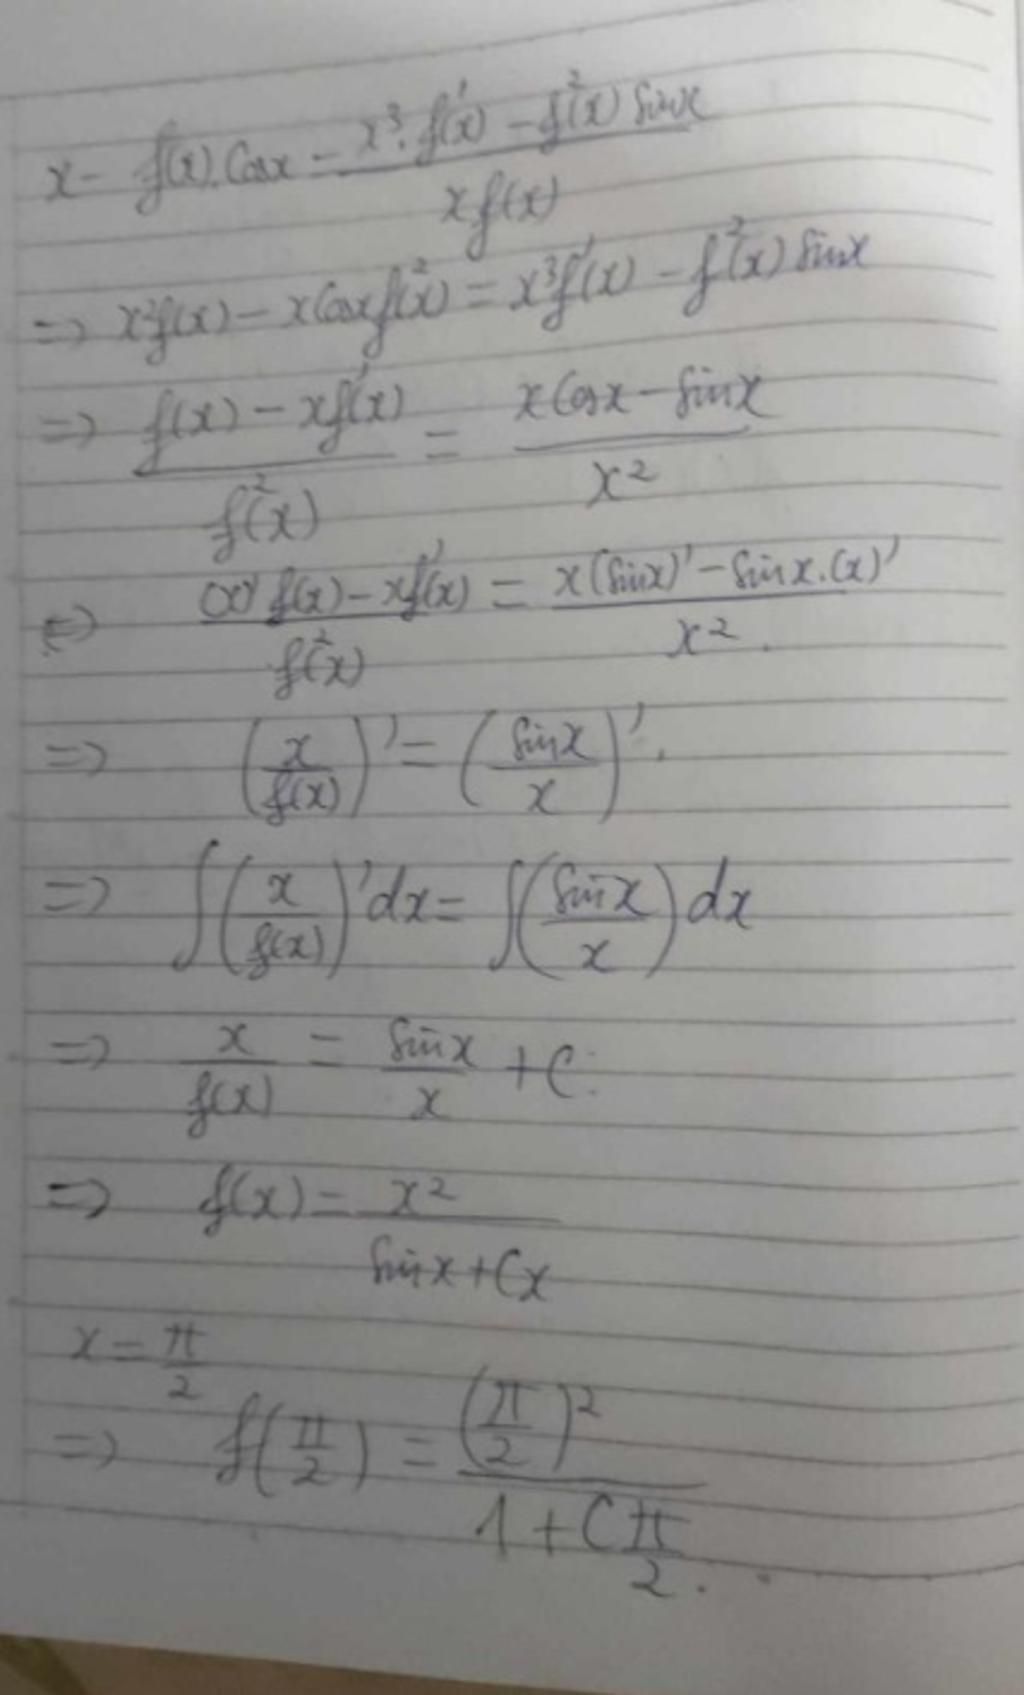 x - f(x).Cosx = (x³.f'(x) - f²(x) sinx) / (x f(x))
=> x²f(x) - xCosxf²(x) = x³f'(x) - f²(x) sinx
=> (f(x) - xf'(x)) / f²(x) = (x Cosx - sinx) / x²
<=> ((x)' f(x) - xf'(x)) / f²(x) = (x(sinx)' - sinx.(x)') / x².
=> (x / f(x))' = (sinx / x)'.
=> ∫(x / f(x))' dx = ∫(sinx / x) dx
=> x / f(x) = sinx / x + C.
=> f(x) = x² / (sinx + Cx)
x = π/2
=> f(π/2) = (π/2)² / (1 + C π/2).